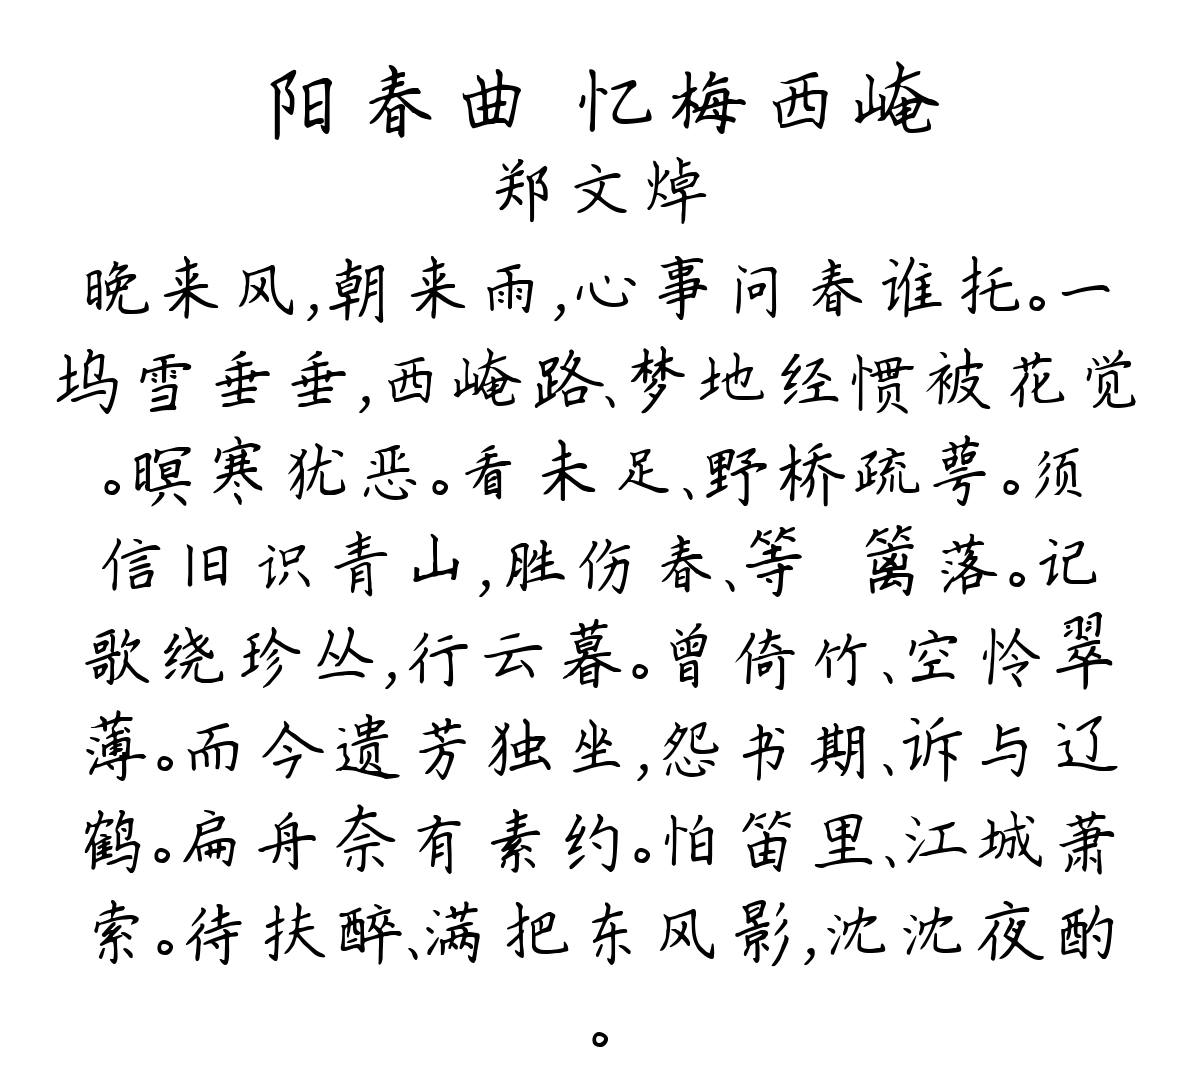 阳春曲 忆梅西崦
郑文焯
晚来风,朝来雨,心事问春谁托。一
坞雪垂垂,西崦路、梦地经惯被花觉
。暝寒犹恶。看未足、野桥疏萼。须
信旧识青山,胜伤春、等 篱落。记
歌绕珍丛,行云暮。曾倚竹、空怜翠
薄。而今遗芳独坐,怨书期、诉与辽
鹤。扁舟奈有素约。怕笛里、江城萧
索。待扶醉、满把东风影,沈沈夜酌
。